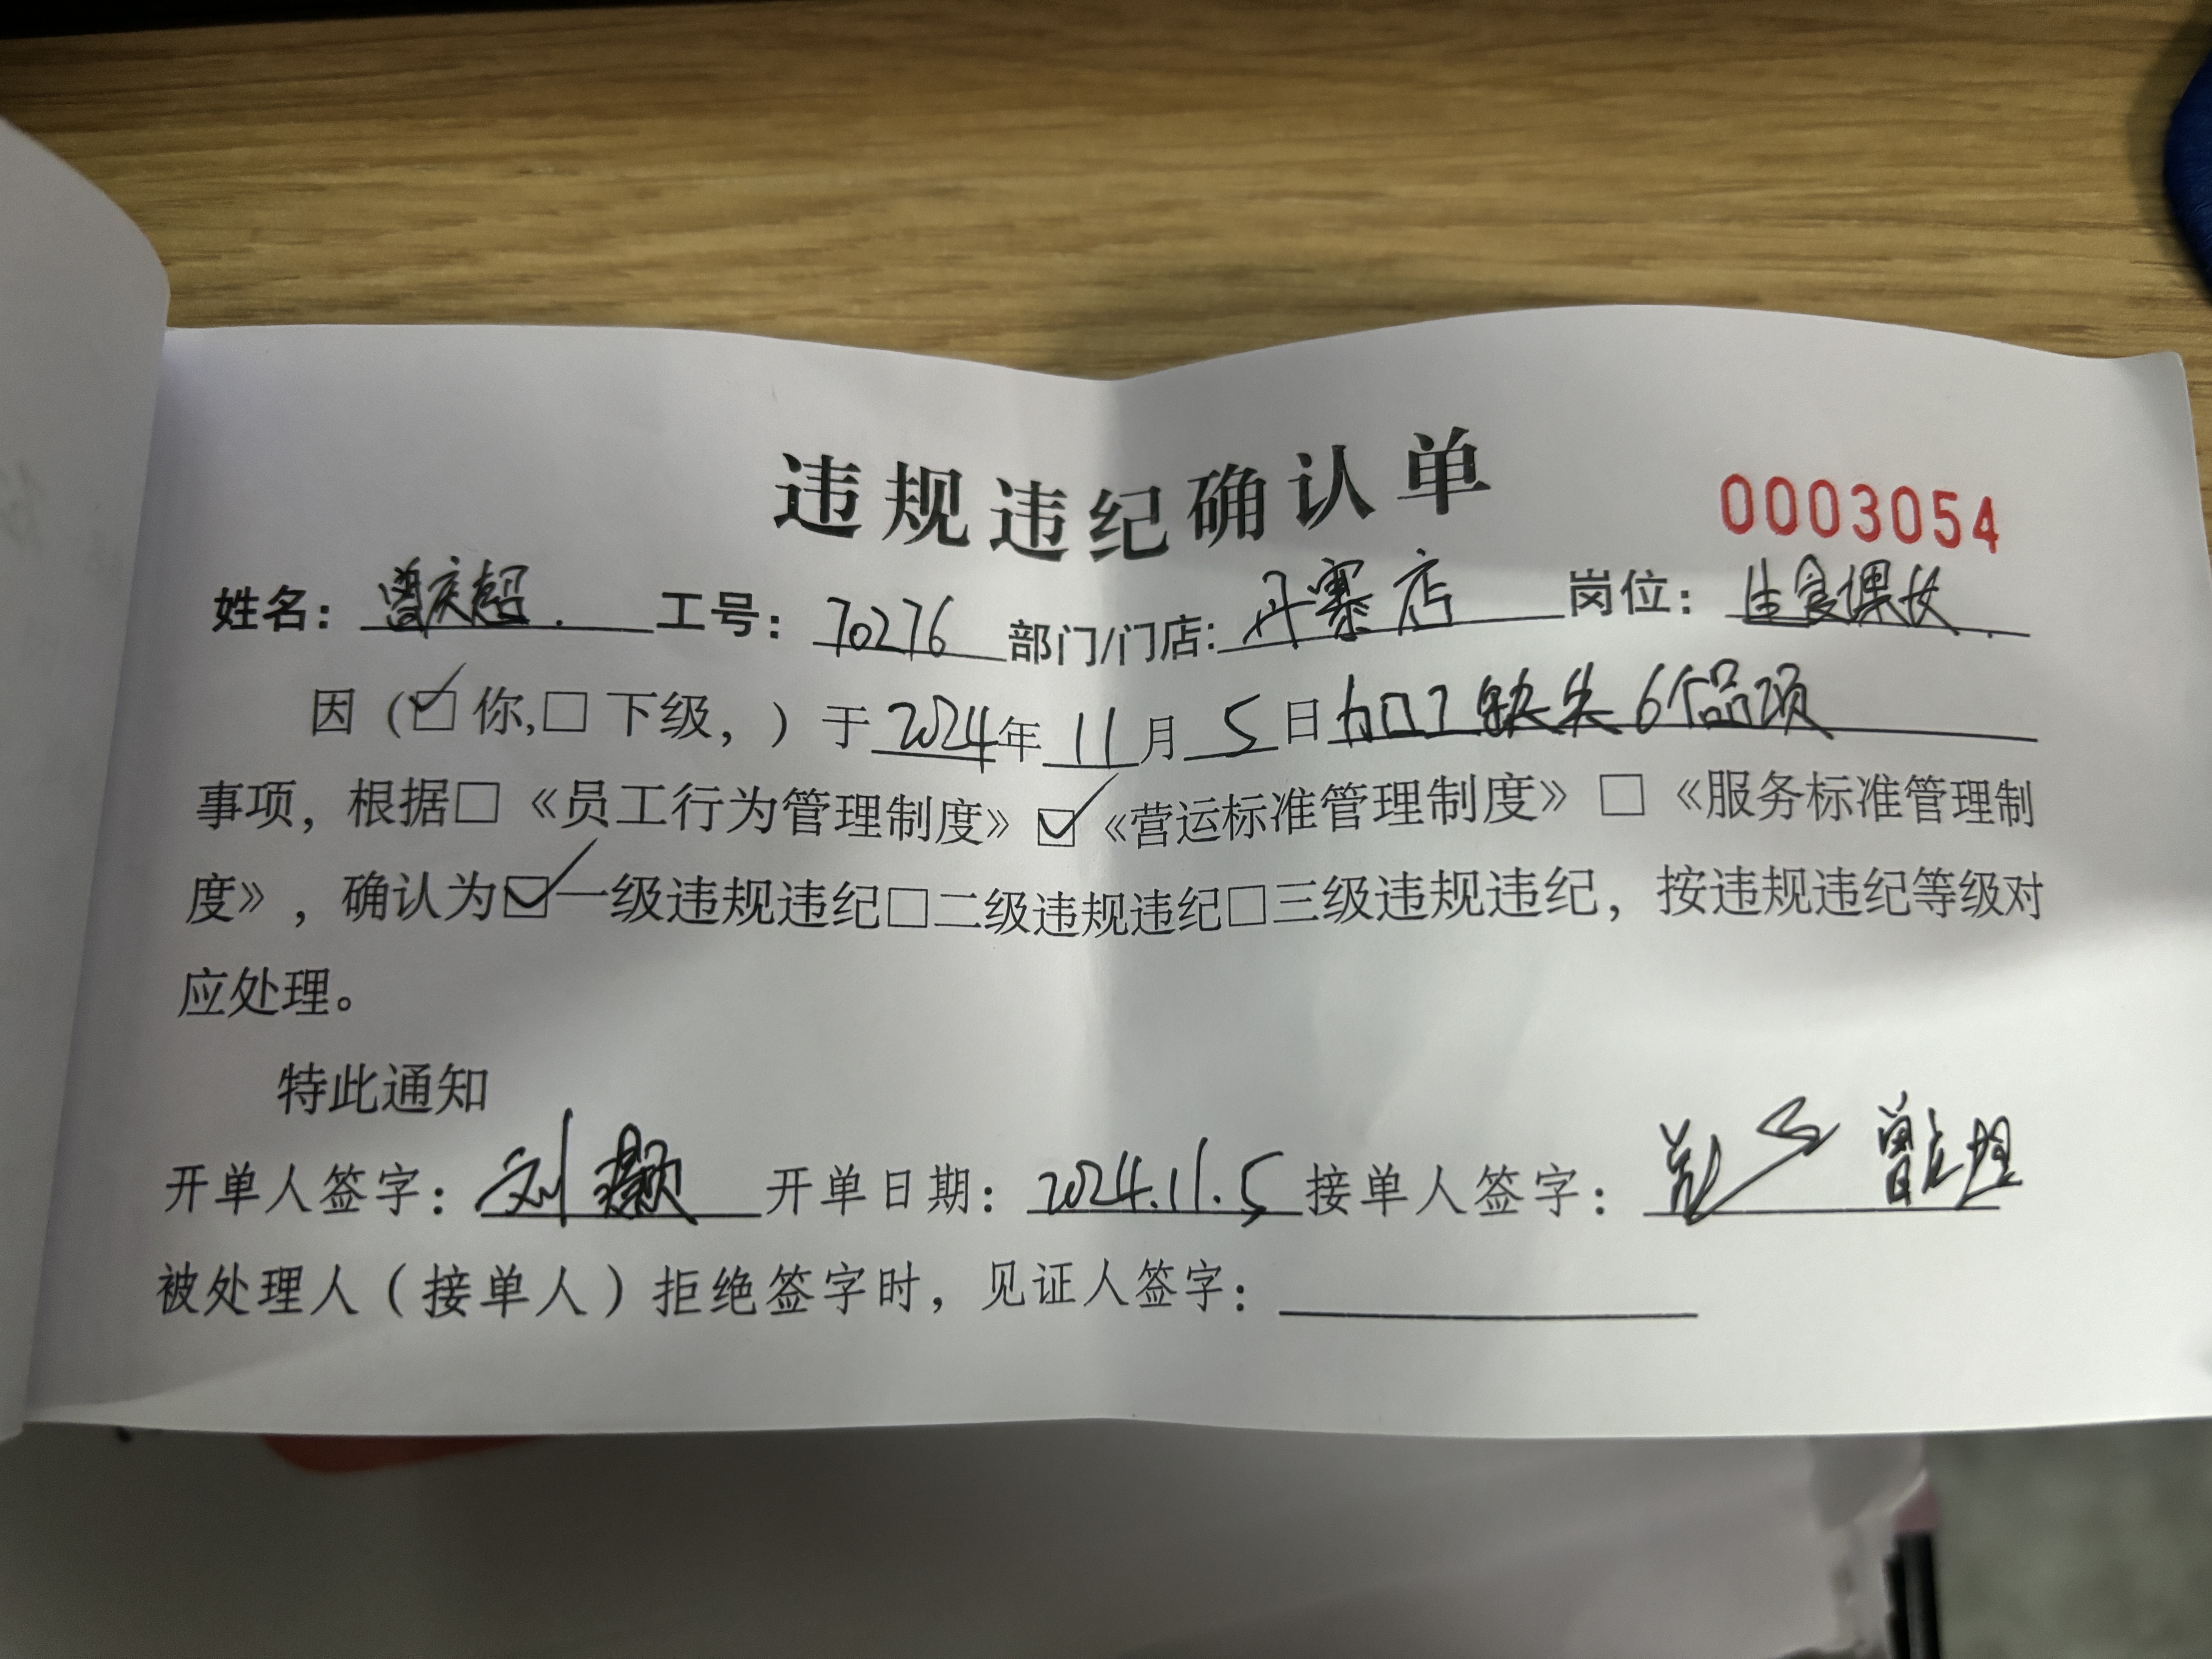 违规违纪确认单
0003054
姓名：曾庆超. 工号：70276 部门/门店：丹寨店 岗位：生食课长.
因（☑你,☐下级，）于2024年11月5日加工缺失6个品项
事项，根据☐《员工行为管理制度》☑《营运标准管理制度》☐《服务标准管理制
度》，确认为☑一级违规违纪☐二级违规违纪☐三级违规违纪，按违规违纪等级对
应处理。
特此通知
开单人签字：刘 开单日期：2024.11.5 接单人签字：
被处理人（接单人）拒绝签字时，见证人签字：